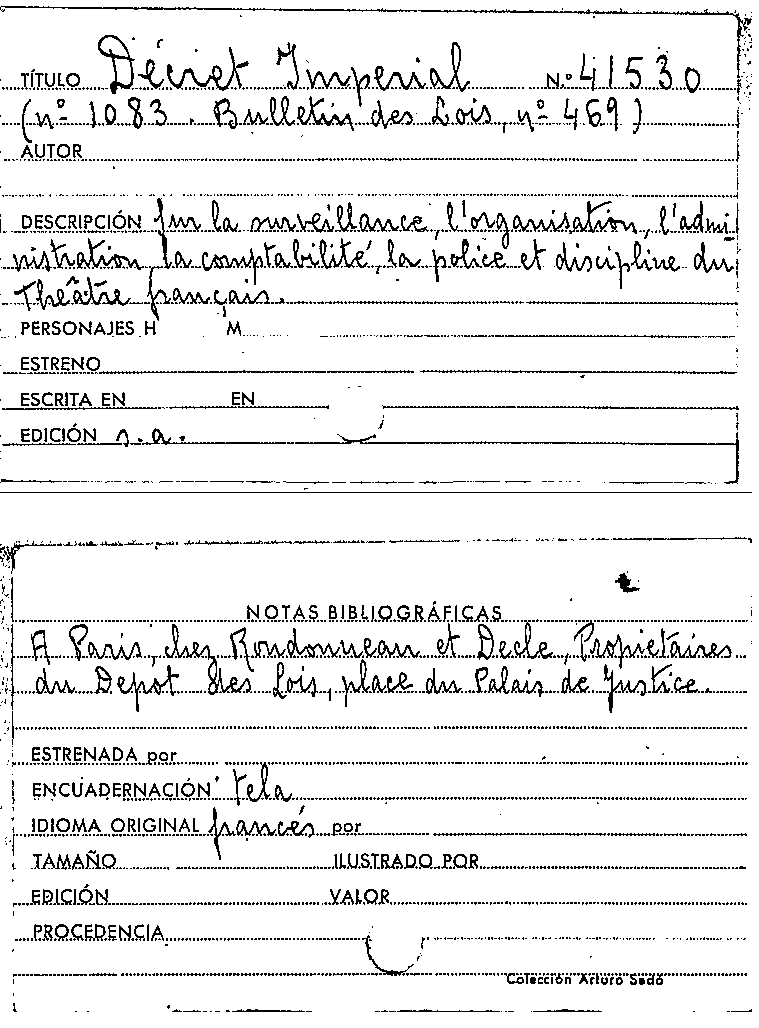 TÍTULO Décret Imperial N.º 41530
(nº 1083. Bulletin des Lois, nº 469)
AUTOR
DESCRIPCIÓN sur la surveillance, l'organisation, l'admi-
nistration, la comptabilité, la police et discipline du
Théâtre français.
PERSONAJES H M
ESTRENO
ESCRITA EN EN
EDICIÓN s.a.
NOTAS BIBLIOGRÁFICAS
A Paris, chez Rondonneau et Decle, Propietaires
du Depot des Lois, place du Palais de Justice.
ESTRENADA por
ENCUADERNACIÓN tela
IDIOMA ORIGINAL francés por
TAMAÑO ILUSTRADO POR
EDICIÓN VALOR
PROCEDENCIA
Colección Arturo Sedó